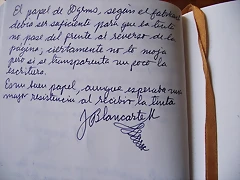 El papel de Dyrms, según el fabricante
debía ser suficiente para que la tinta
no pase del frente al reverso de la
página, ciertamente no lo moja
pero si se transparenta un poco la
escritura.
Es un buen papel, aunque esperaba una
mayor resistencia al recibir la tinta
JBlancarte